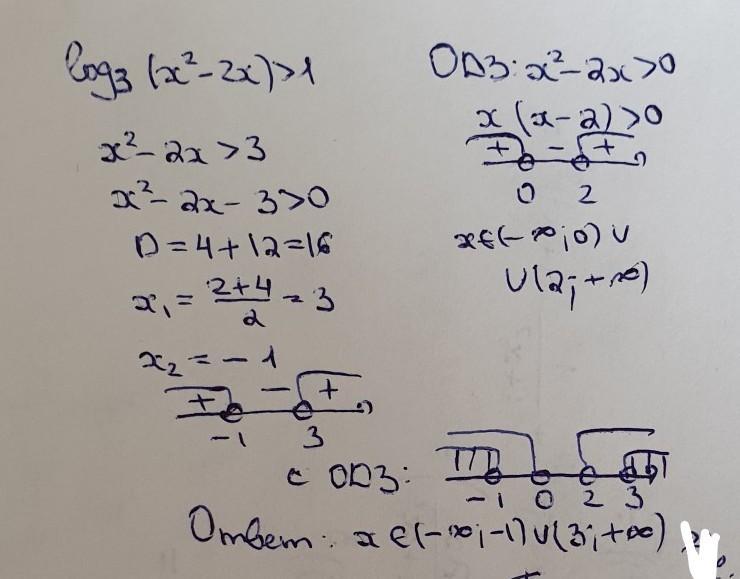 log₃ (x² - 2x) > 1
x² - 2x > 3
x² - 2x - 3 > 0
D = 4 + 12 = 16
x₁ = (2+4)/2 = 3
x₂ = -1
+ - +
-1 3
ОДЗ: x² - 2x > 0
x (x - 2) > 0
+ - +
0 2
x ∈ (-∞; 0) ∪
∪ (2; +∞)
с ОДЗ:
-1 0 2 3
Ответ: x ∈ (-∞; -1) ∪ (3; +∞)